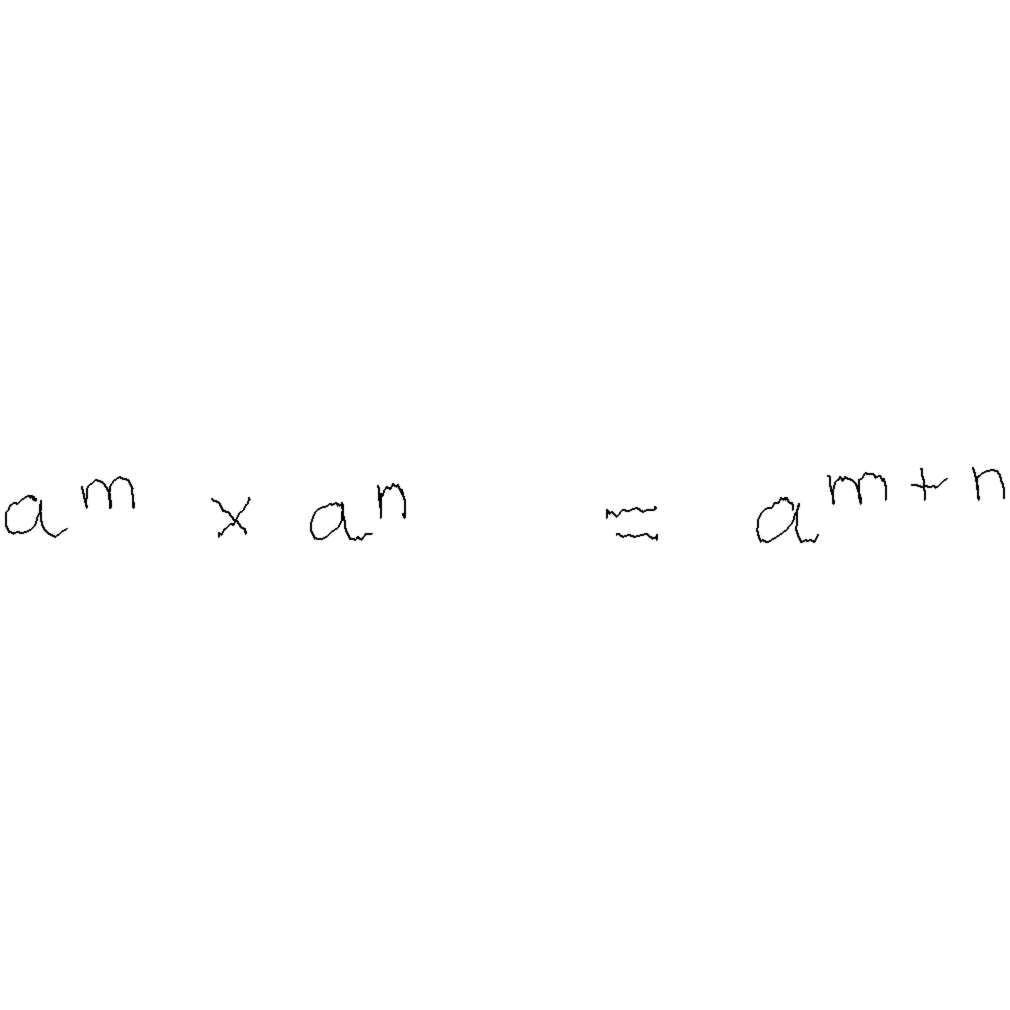 a^m × a^n = a^{m+n}